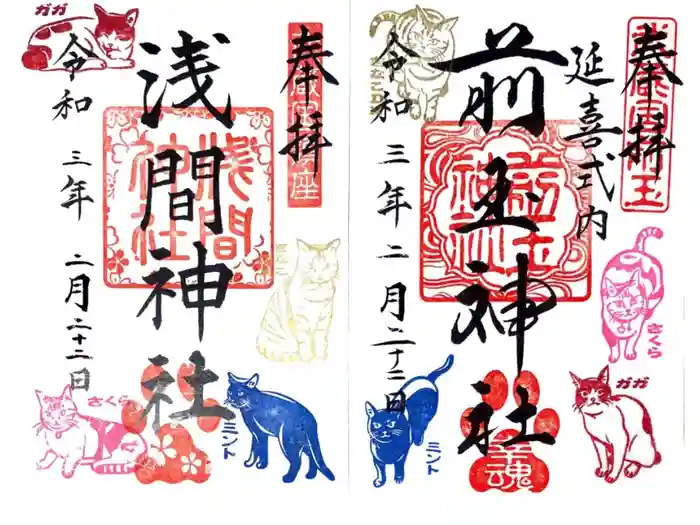 奉拝
延喜式内
前玉神社
前玉神社
令和三年二月二十二日
さくら
ガガ
ミント
奉拝
浅間神社
浅間神社
令和三年二月二十二日
ガガ
さくら
ミント